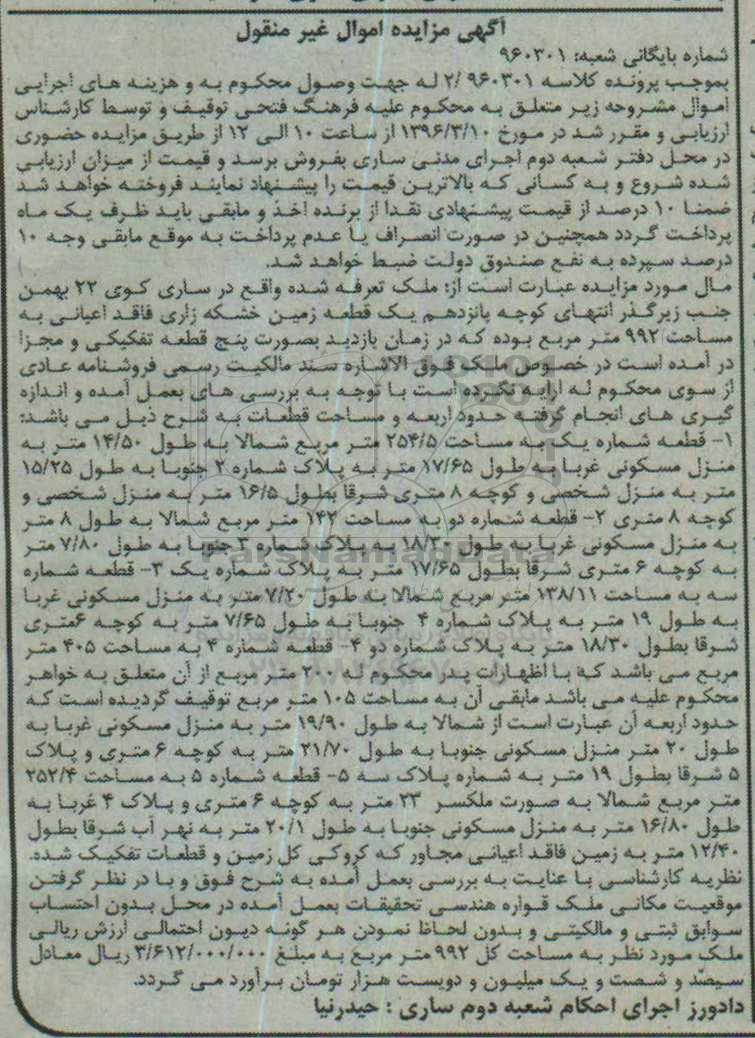 آگهی مزایده اموال غیر منقول
شماره بایگانی شعبه: ۹۶۰۳۰۱
بموجب پرونده کلاسه ۹۶۰۳۰۱ /۲ له جهت وصول محکوم به و هزینه های اجرایی
اموال مشروحه زیر متعلق به محکوم علیه فرهنگ فتحی توقیف و توسط کارشناس
ارزیابی و مقرر شد در مورخ ۱۳۹۶/۳/۱۰ از ساعت ۱۰ الی ۱۲ از طریق مزایده حضوری
در محل دفتر شعبه دوم اجرای مدنی ساری بفروش برسد و قیمت از میزان ارزیابی
شده شروع و به کسانی که بالاترین قیمت را پیشنهاد نمایند فروخته خواهد شد
ضمنا ۱۰ درصد از قیمت پیشنهادی نقدا از برنده اخذ و مابقی باید ظرف یک ماه
پرداخت گردد همچنین در صورت انصراف یا عدم پرداخت به موقع مابقی وجه ۱۰
درصد سپرده به نفع صندوق دولت ضبط خواهد شد.
مال مورد مزایده عبارت است از: ملک تعرفه شده واقع در ساری کوی ۲۲ بهمن
جنب زیرگذر انتهای کوچه پانزدهم یک قطعه زمین خشکه زاری فاقد اعیانی به
مساحت ۹۹۲ متر مربع بوده که در زمان بازدید بصورت پنج قطعه تفکیکی و مجزا
در آمده است در خصوص ملک فوق الاشاره سند مالکیت رسمی فروشنامه عادی
از سوی محکوم له ارایه نگرده است با توجه به بررسی های بعمل آمده و اندازه
گیری های انجام گرفته حدود اربعه و مساحت قطعات به شرح ذیل می باشد:
۱- قطعه شماره یک به مساحت ۲۵۴/۵ متر مربع شمالا به طول ۱۴/۵۰ متر به
منزل مسکونی غربا به طول ۱۷/۶۵ متر به پلاک شماره ۲ جنوبا به طول ۱۵/۲۵
متر به منزل شخصی و کوچه ۸ متری شرقا بطول ۱۶/۵ متر به منزل شخصی و
کوچه ۸ متری ۲- قطعه شماره دو به مساحت ۱۴۲ متر مربع شمالا به طول ۸ متر
به منزل مسکونی غربا به طول ۱۸/۳۰ به پلاک شماره ۳ جنوبا به طول ۷/۸۰ متر
به کوچه ۶ متری شرقا بطول ۱۷/۶۵ متر به پلاک شماره یک ۳- قطعه شماره
سه به مساحت ۱۳۸/۱۱ متر مربع شمالا به طول ۷/۲۰ متر به منزل مسکونی غربا
به طول ۱۹ متر به پلاک شماره ۴ جنوبا به طول ۷/۶۵ متر به کوچه ۶متری
شرقا بطول ۱۸/۳۰ متر به پلاک شماره دو ۴- قطعه شماره ۴ به مساحت ۴۰۵ متر
مربع می باشد که با اظهارات پدر محکوم له ۲۰۰ متر مربع از آن متعلق به خواهر
محکوم علیه می باشد مابقی آن به مساحت ۱۰۵ متر مربع توقیف گردیده است که
حدود اربعه آن عبارت است از شمالا به طول ۱۹/۹۰ متر به منزل مسکونی غربا به
طول ۲۰ متر منزل مسکونی جنوبا به طول ۲۱/۷۰ متر به کوچه ۶ متری و پلاک
۵ شرقا بطول ۱۹ متر به شماره پلاک سه ۵- قطعه شماره ۵ به مساحت ۲۵۲/۴
متر مربع شمالا به صورت ملکسر ۲۳ متر به کوچه ۶ متری و پلاک ۴ غربا به
طول ۱۶/۸۰ متر به منزل مسکونی جنوبا به طول ۲۰/۱ متر به نهر آب شرقا بطول
۱۲/۴۰ متر به زمین فاقد اعیانی مجاور که کروکی کل زمین و قطعات تفکیک شده.
نظریه کارشناسی با عنایت به بررسی بعمل آمده به شرح فوق و با در نظر گرفتن
موقعیت مکانی ملک قواره هندسی تحقیقات بعمل آمده در محل بدون احتساب
سوابق ثبتی و مالکیتی و بدون لحاظ نمودن هر گونه دیون احتمالی ارزش ریالی
ملک مورد نظر به مساحت کل ۹۹۲ متر مربع به مبلغ ۳/۶۱۲/۰۰۰/۰۰۰ ریال معادل
سیصد و شصت و یک میلیون و دویست هزار تومان برآورد می گردد.
دادورز اجرای احکام شعبه دوم ساری : حیدرنیا
ParsNamadData